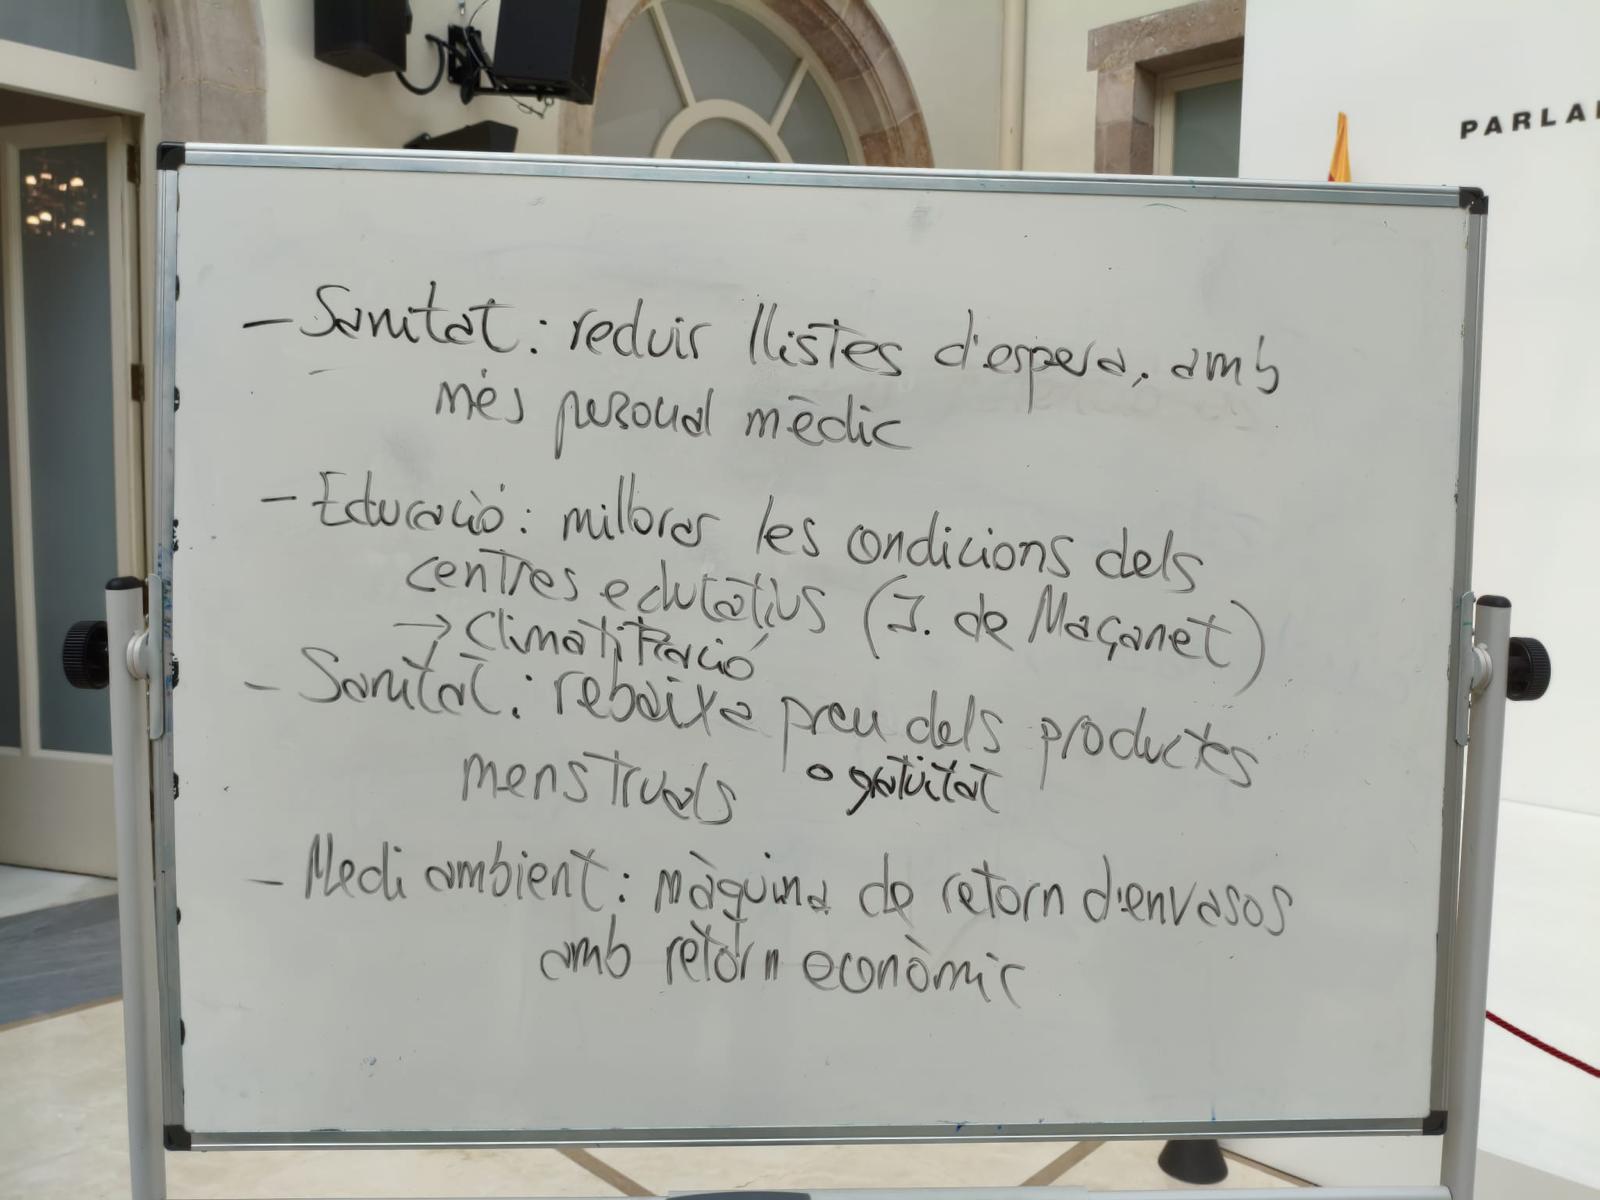 PARLA
- Sanitat: reduir llistes d'espera, amb
més personal mèdic
- Educació: millorar les condicions dels
centres educatius (I. de Maçanet)
→ Climatització
- Sanitat: rebaixa preu dels productes
menstruals o gratuïtat
- Medi ambient: màquina de retorn d'envasos
amb retorn econòmic